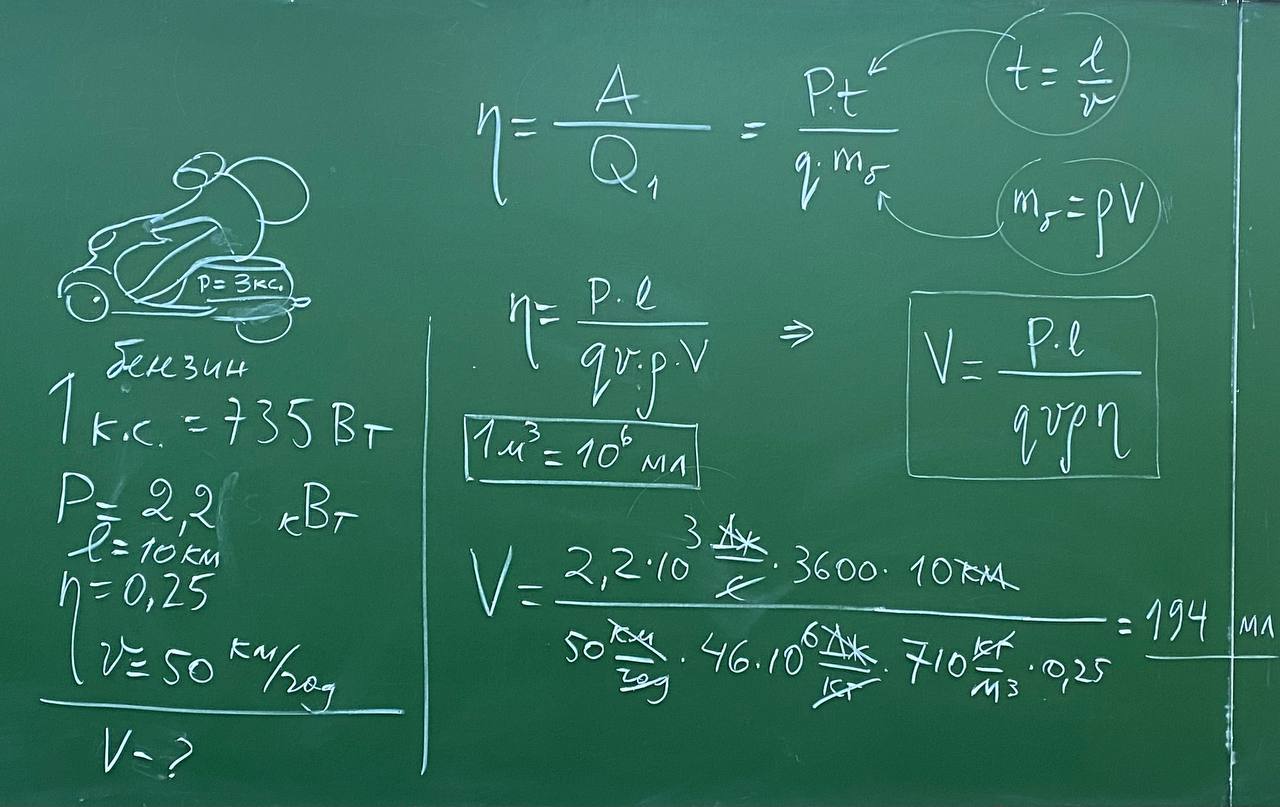 P = 3 к.с.
бензин
1 к.с. = 735 Вт
P = 2,2 кВт
l = 10 км
η = 0,25
v = 50 км/год
V - ?
η = A / Q₁ = P·t / q·mб
t = l / v
mб = ρV
η = P·l / qv·ρ·V ⇒ V = P·l / qvρη
1 м³ = 10⁶ мл
V = 2,2·10³ Дж/с · 3600 · 10 км / 50 км/год · 46·10⁶ Дж/кг · 710 кг/м³ · 0,25 = 194 мл